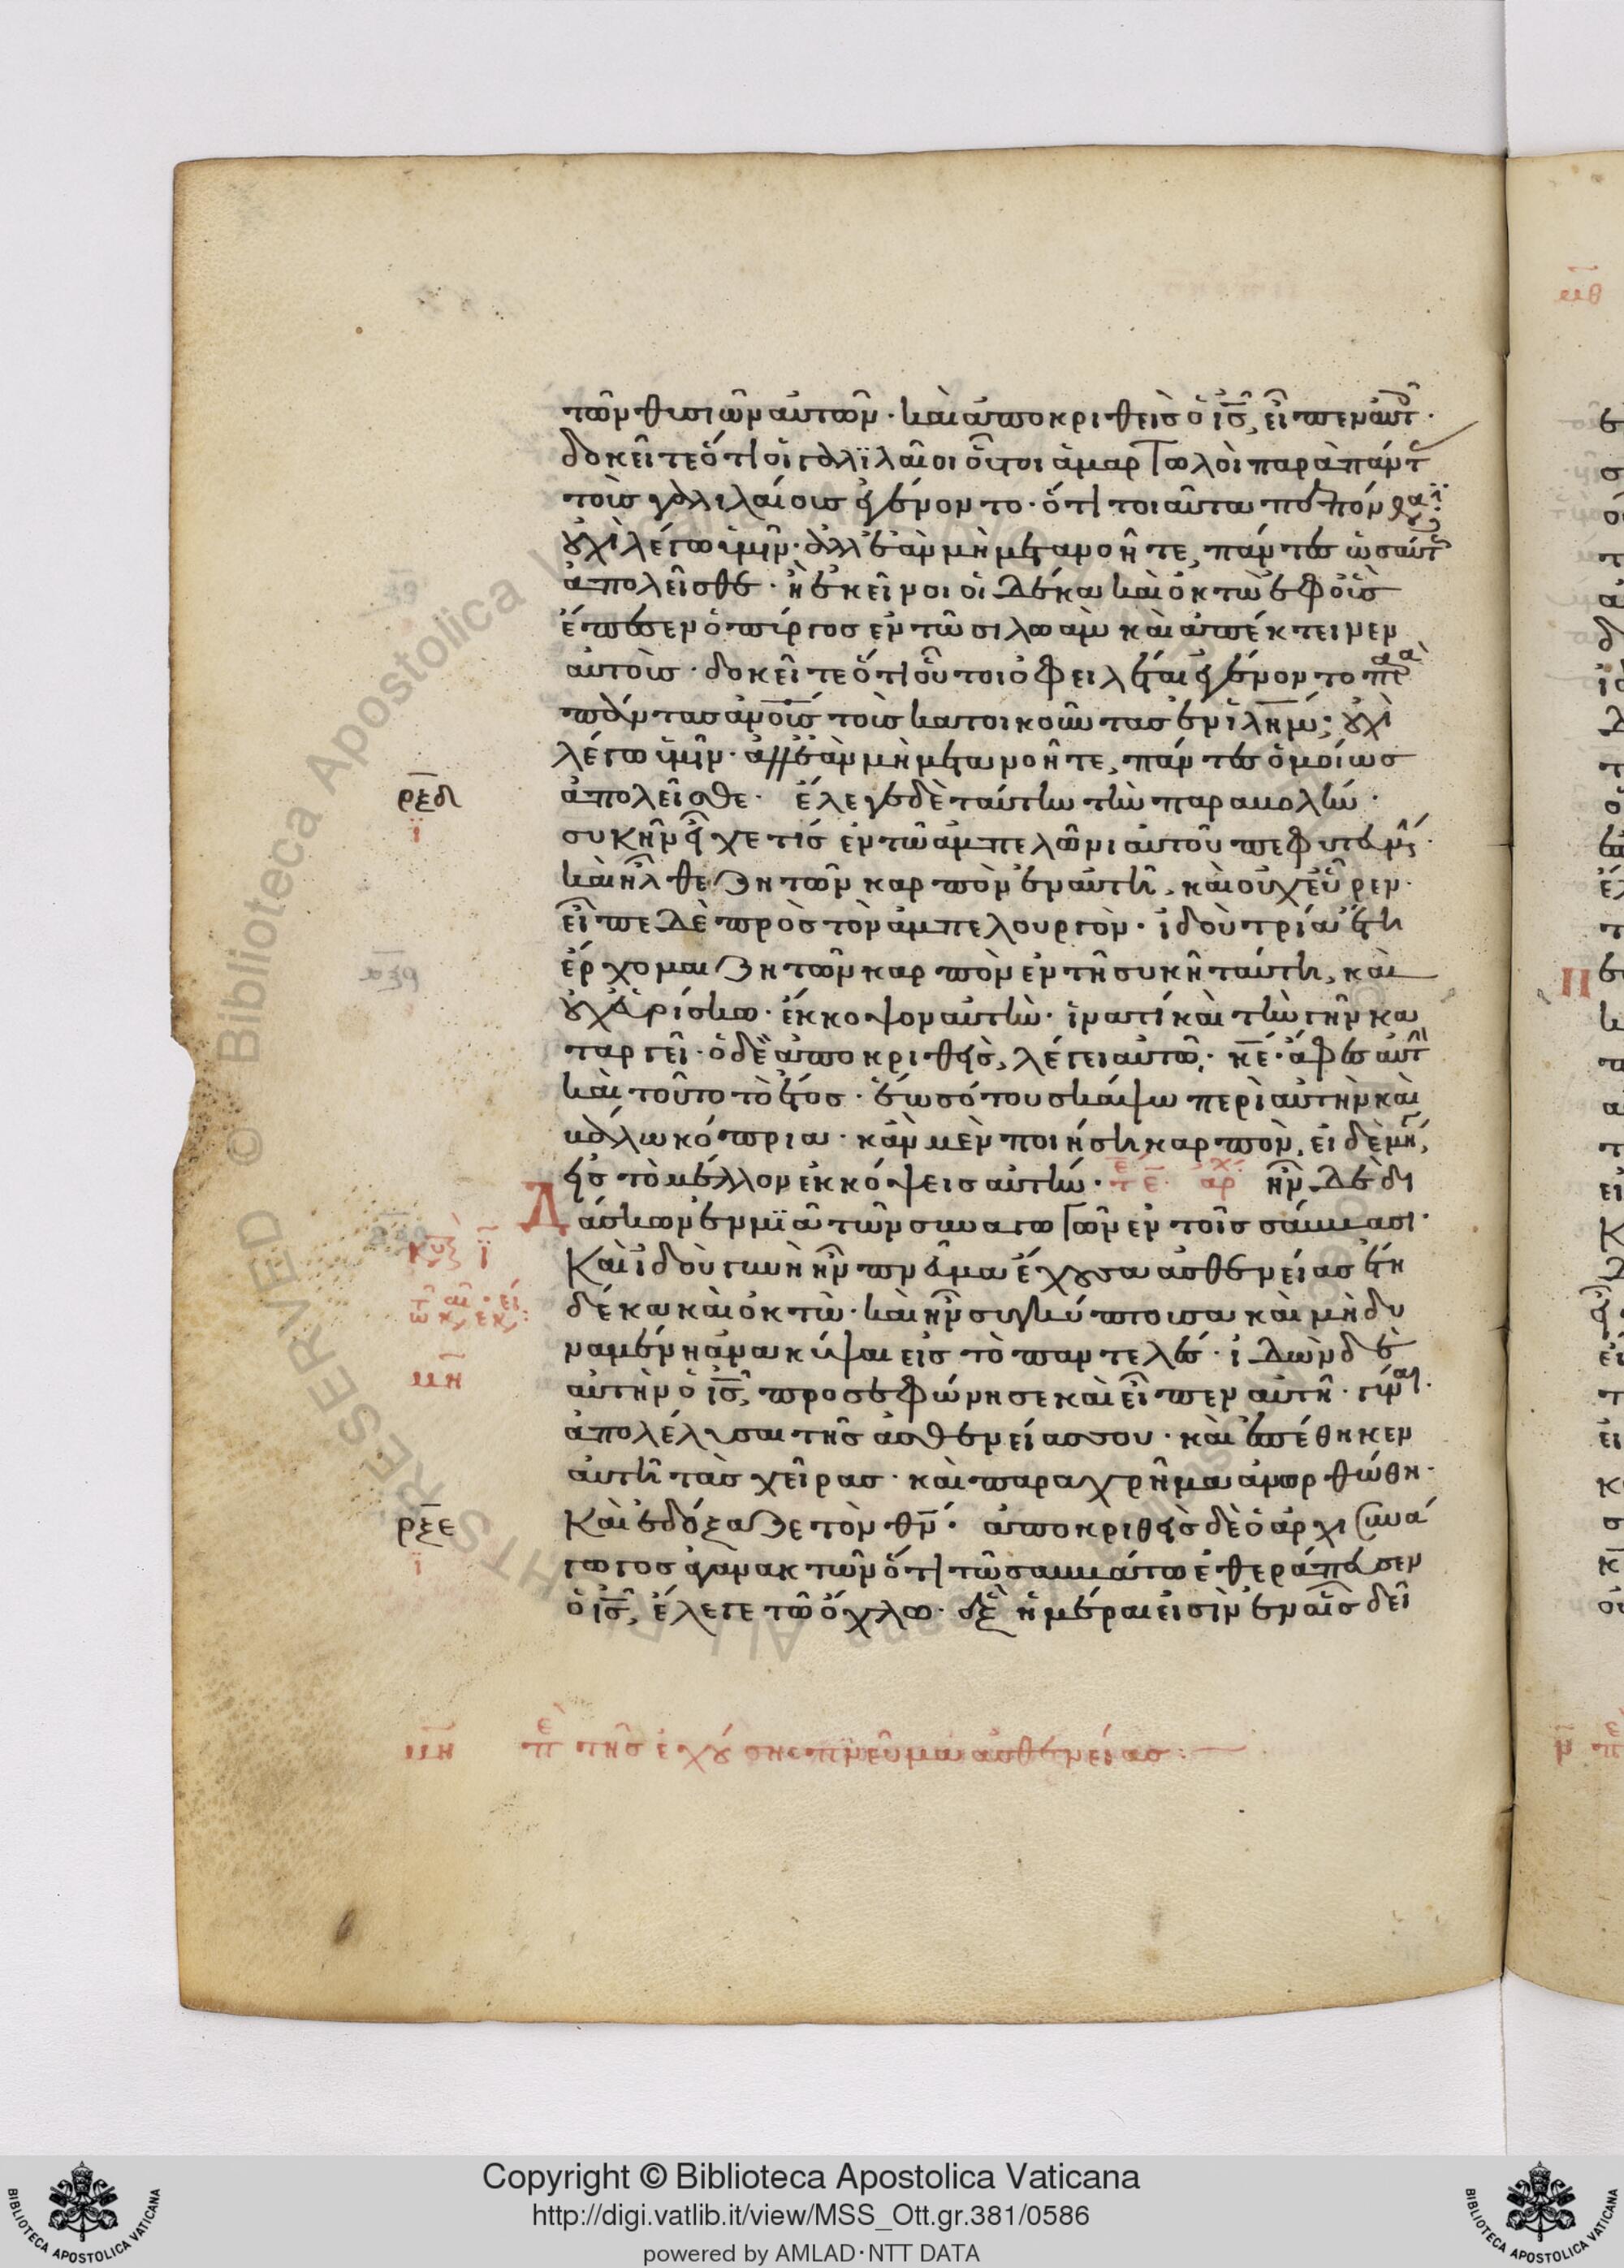 τῶν θυσιῶν αὐτῶν· καὶ ἀποκριθεὶς ὁ ις, εἶπεν αὐτ·
δοκεῖτε ὅτι οἱ γαλϊλαῖοι οὗτοι ἁμαρτωλοὶ παρὰ πάντ
τοὺς γαλιλαίους ἐγένοντο· ὅτι τοιαῦτα πεπόνθα
οὐχὶ λέγω ὑμῖν· ἀλλ' ἐὰν μὴ μετανοῆτε, πάντες ὡσαύτ
ἀπολεῖσθε· ἢ ἐκεῖνοι οἱ δέκα καὶ ὀκτὼ ἐφ οὓς
ἔπεσεν ὁ πύργος ἐν τῶ σιλωὰμ καὶ ἀπέκτεινεν
αὐτοὺς· δοκεῖτε ὅτι οὗτοι ὀφειλέται ἐγένοντο πα
πάντας ανους τοὺς κατοικοῦντας ἐν ιλημ; οὐχὶ
λέγω ὑμῖν· ἀλλ' ἐὰν μὴ μετανοῆτε, πάντες ὁμοίως
ρξδ ἀπολεῖσθε· ἔλεγε δὲ ταύτην τὴν παραβολήν·
ϊ συκῆν εἶχε τίς ἐν τῶ ἀμπελῶνι αὐτοῦ πεφυτευμ·
καὶ ἦλθε ζητῶν καρπὸν ἐν αὐτῆ, καὶ οὐχ εὗρεν·
εἶπε δὲ πρὸς τὸν ἀμπελουργὸν· ἰδοὺ τρία ἔτη
ἔρχομαι ζητῶν καρπὸν ἐν τῆ συκῆ ταύτη, καὶ
οὐχ εὑρίσκω· ἔκκοψον αὐτὴν· ἱνατί καὶ τὴν γῆν κα
ταργεῖ· ὁ δὲ ἀποκριθεὶς, λέγει αὐτῶ· κε· ἄφες αὐτ
καὶ τοῦτο τὸ ἔτος· ἕως ὅτου σκάψω περὶ αὐτὴν καὶ
βάλω κόπρια· κἂν μὲν ποιήση καρπὸν, εἰ δὲ μή,
εἰς τὸ μέλλον ἐκκόψεις αὐτήν· τε αρχ ἦν δὲ δι
δάσκων ἐν μϊᾶ τῶν συναγωγῶν ἐν τοῖς σάββασι·
ϊ Καὶ ἰδοὺ γυνὴ ἦν πνα ἔχουσα ἀσθενείας ἔτη
δέκα καὶ ὀκτὼ· καὶ ἦν συγκύπτουσα καὶ μὴ δυ
ναμένη ἀνακύψαι εἰς τὸ παντελές· ἰδὼν δὲ
ιη αὐτὴν ὁ ις, προσεφώνησε καὶ εἶπεν αὐτῆ· γύναι·
ἀπολέλυσαι τῆς ἀσθενείας σου· καὶ ἐπέθηκεν
αὐτῆ τὰς χεῖρας· καὶ παραχρῆμα ἀνωρθώθη·
ρξε Καὶ ἐδόξαζε τὸν θν· ἀποκριθεὶς δὲ ὁ ἀρχισυνά
ϊ γωγος ἀγανακτῶν ὅτι τῶ σαββάτω ἐθεράπευσεν
ὁ ις, ἔλεγε τῶ ὄχλω· ἓξ ἡμέραι εἰσὶν ἐν αἷς δεῖ
πε τῆς ἐχούσης πνεῦμα ἀσθενείας:
Copyright © Biblioteca Apostolica Vaticana
http://digi.vatlib.it/view/MSS_Ott.gr.381/0586
powered by AMLAD·NTT DATA
BIBLIOTECA APOSTOLICA VATICANA
BIBLIOTECA APOSTOLICA VATICANA